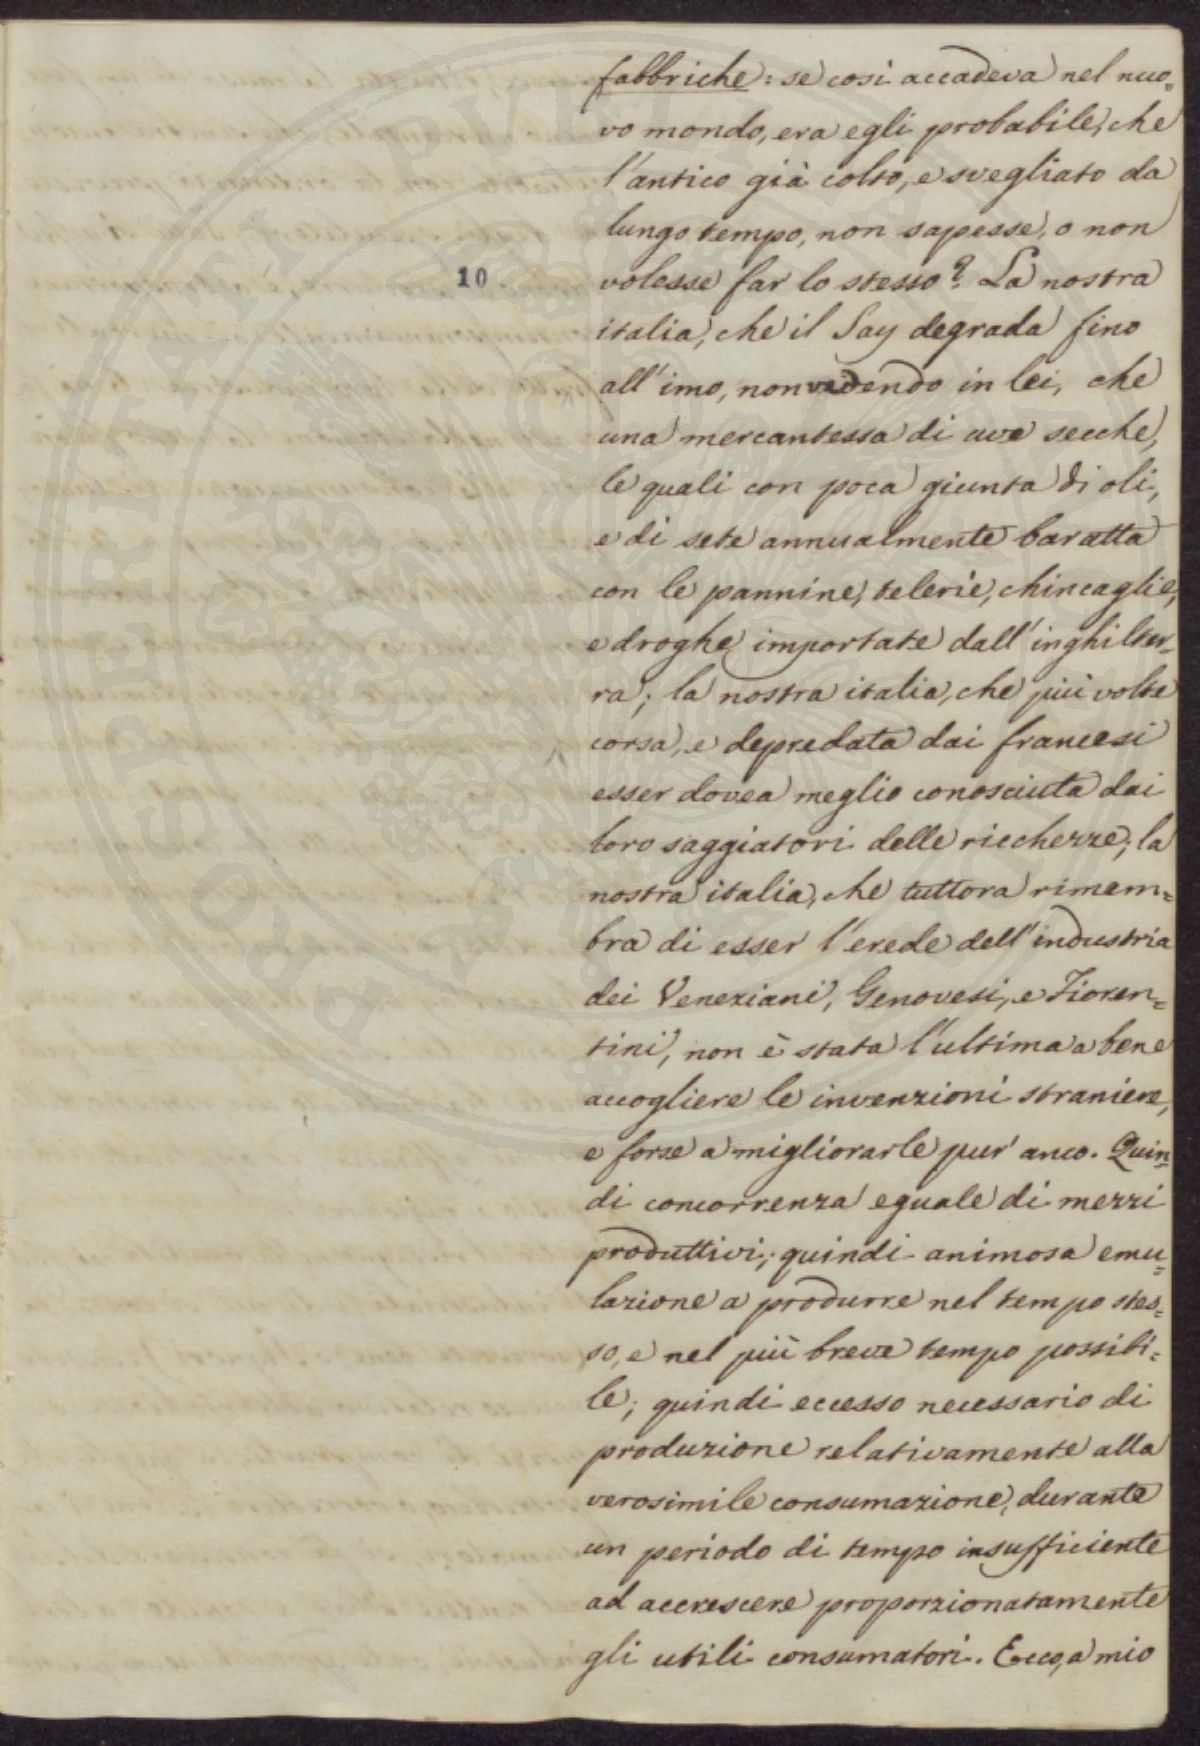 fabbriche: se così accadeva nel nuo=
vo mondo, era egli probabile, che
l'antico già colto, e svegliato da
lungo tempo, non sapesse, o non
10
volesse far lo stesso? La nostra
italia, che il Say degrada fino
all'imo, non vedendo in lei, che
una mercantessa di uve secche,
le quali con poca giunta di oli,
e di sete annualmente baratta
con le pannine, telerie, chincaglie,
e droghe importate dall'inghilter=
ra; la nostra italia, che più volte
corsa, e depredata dai francesi
esser dovea meglio conosciuta dai
loro saggiatori delle ricchezze; la
nostra italia, che tuttora rimem=
bra di esser l'erede dell'industria
dei Veneziani, Genovesi, e Fioren=
tini, non è stata l'ultima a bene
accogliere le invenzioni straniere,
e forse a migliorarle pur'anco. Quin=
di concorrenza eguale di mezzi
produttivi; quindi animosa emu=
lazione a produrre nel tempo stes=
so, e nel più breve tempo possibi=
le; quindi eccesso necessario di
produzione relativamente alla
verosimile consumazione, durante
un periodo di tempo insufficiente
ad accrescere proporzionatamente
gli utili consumatori. Ecco, a mio
PROSPERITATI PVBLICAE